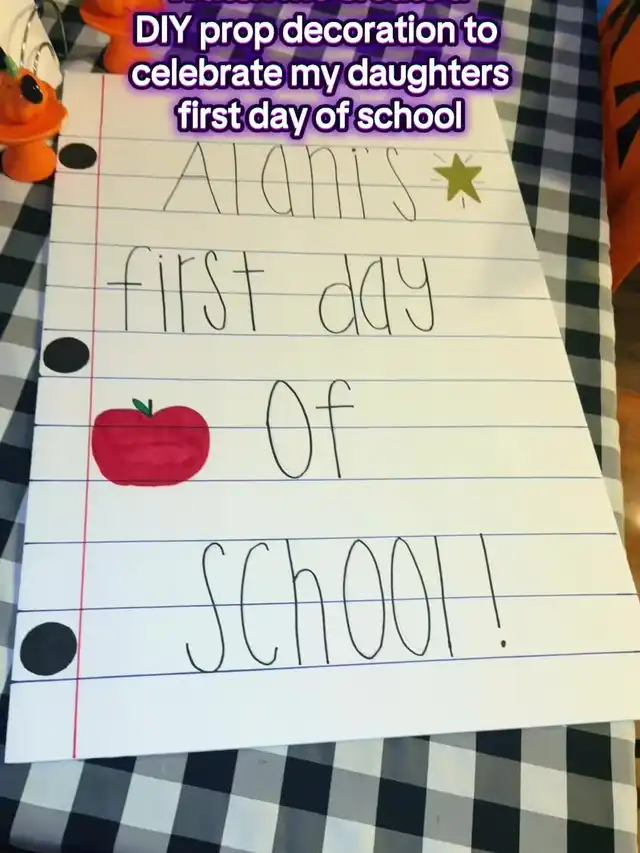 DIY prop decoration to
celebrate my daughters
first day of school
Alani's
first day
of
school!